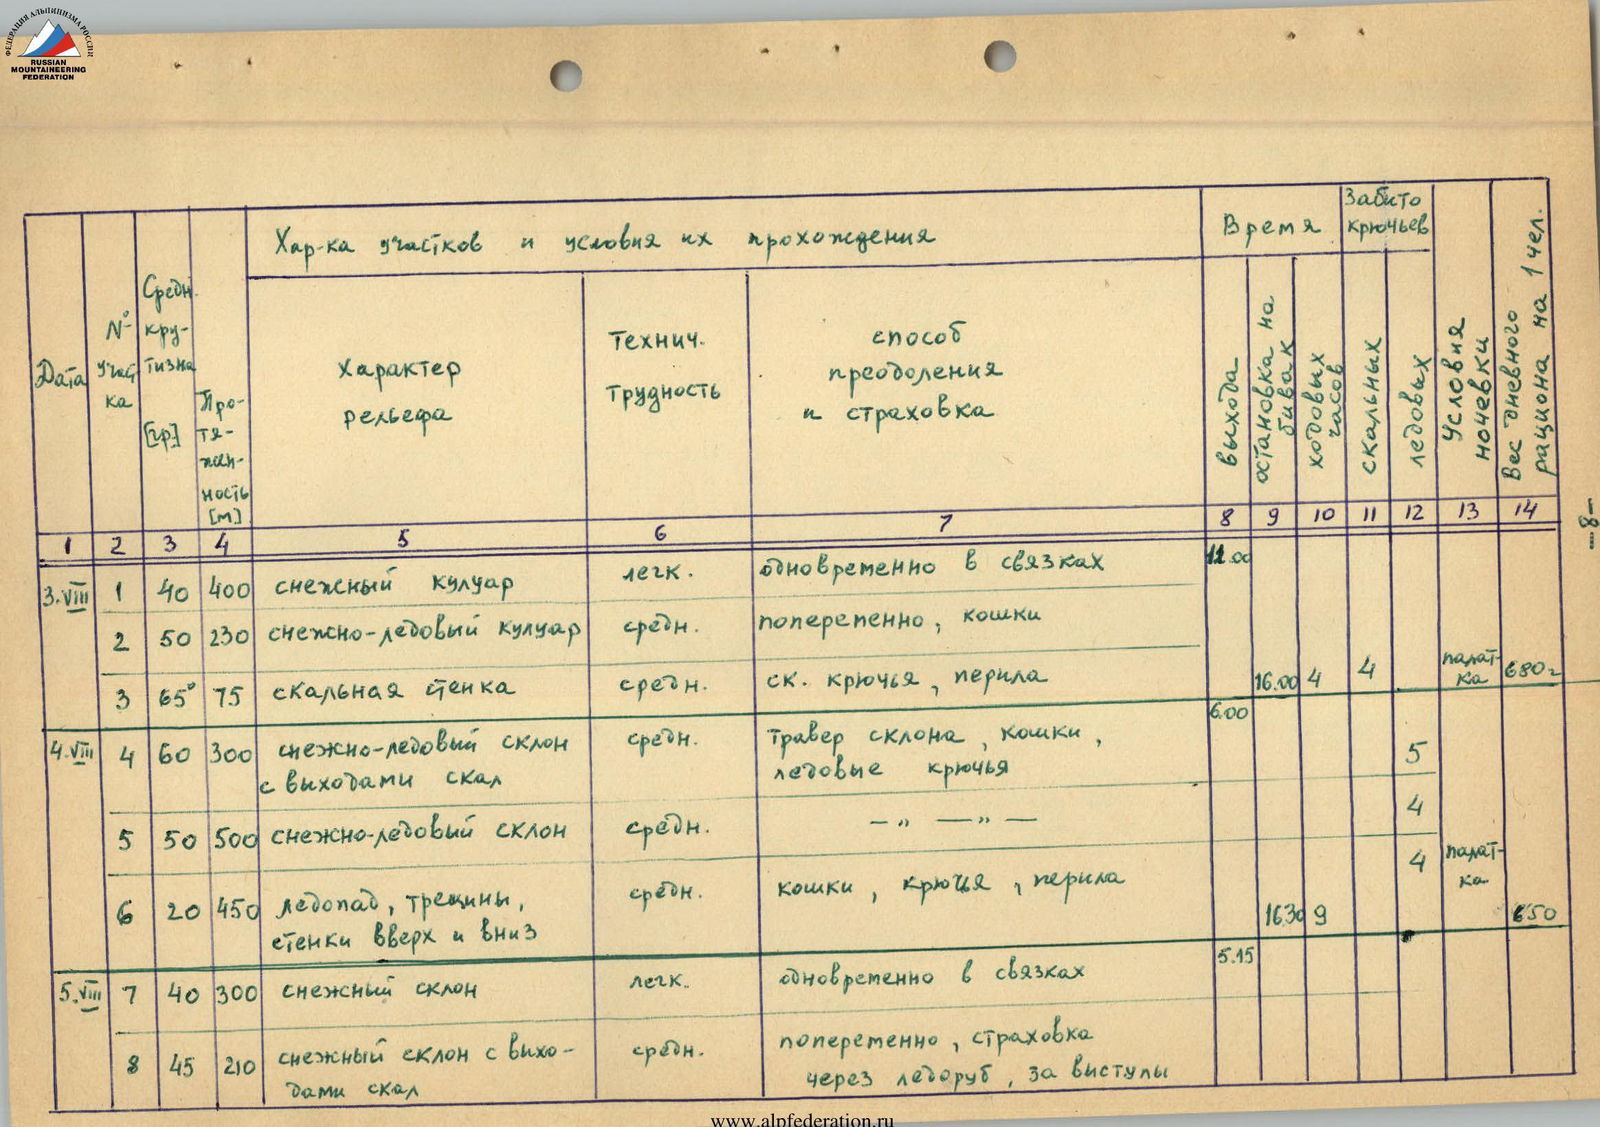 ФЕДЕРАЦИЯ АЛЬПИНИЗМА РОССИИ
RUSSIAN
MOUNTAINEERING
FEDERATION
Дата
№ участ ка
Средн. кру- тизна [гр.]
Про- тя- жен- ность [м]
Хар-ка участков и условия их прохождения
Характер рельефа
Технич. трудность
способ преодоления и страховка
Время
выхода
остановка на бивак
ходовых часов
Забито крючьев
скальных
ледовых
Условия ночевки
Вес дневного рациона на 1 чел.
-8-
1 2 3 4 5 6 7 8 9 10 11 12 13 14
3.VIII 1 40 400 снежный кулуар легк. одновременно в связках 11.00
2 50 230 снежно-ледовый кулуар средн. попеременно, кошки
3 65° 75 скальная стенка средн. ск. крючья, перила 16.00 4 4 палат- ка 680г
4.VIII 4 60 300 снежно-ледовый склон средн. травер склона, кошки, 6.00
с выходами скал ледовые крючья 5
5 50 500 снежно-ледовый склон средн. — „ — „ — 4
6 20 450 ледопад, трещины, средн. кошки, крючья, перила 4 палат- ка
стенки вверх и вниз 1630 9 650
5.VIII 7 40 300 снежный склон легк. одновременно в связках 5.15
8 45 210 снежный склон с выхо- средн. попеременно, страховка
дами скал через ледоруб, за выступы
www.alpfederation.ru